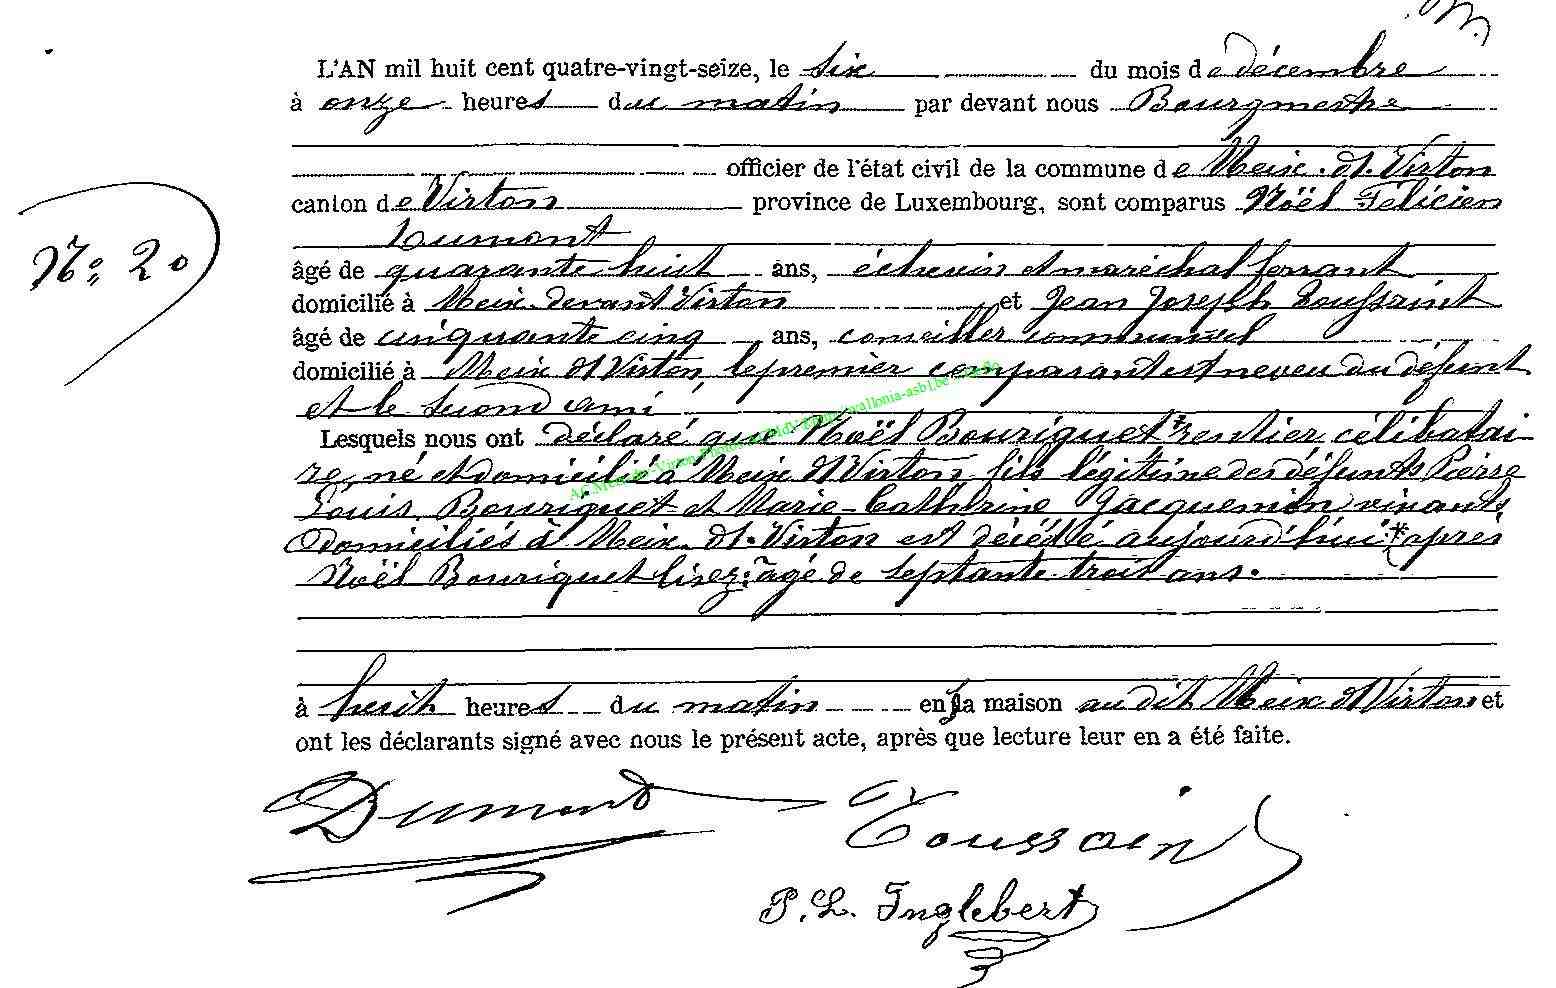 L'AN mil huit cent quatre-vingt-seize, le six du mois de décembre
à onze heures du matin par devant nous Bourgmestre
officier de l'état civil de la commune de Meix-dt-Virton
canton de Virton province de Luxembourg, sont comparus Noël Félicien
Dumont
âgé de quarante huit ans, échevin et maréchal ferrant
domicilié à Meix-devant Virton et Jean Joseph Toussaint
âgé de cinquante cinq ans, conseiller communal
domicilié à Meix dt Virton, le premier comparant est neveu du défunt
et le second ami
Lesquels nous ont déclaré que Noël Bouriquet * rentier, célibatai-
re, né et domicilié à Meix dt Virton, fils légitime des défunts Pierre
Louis Bouriquet et Marie-Catherine Jacquemin vivants
domiciliés à Meix-dt-Virton est décédé aujourd'hui * après
Noël Bouriquet lisez: âgé de septante trois ans.
à huit heures du matin en sa maison au dit Meix dt Virton, et
ont les déclarants signé avec nous le présent acte, après que lecture leur en a été faite.
N° 20
Dumont
Toussaint
P. L. Inglebert